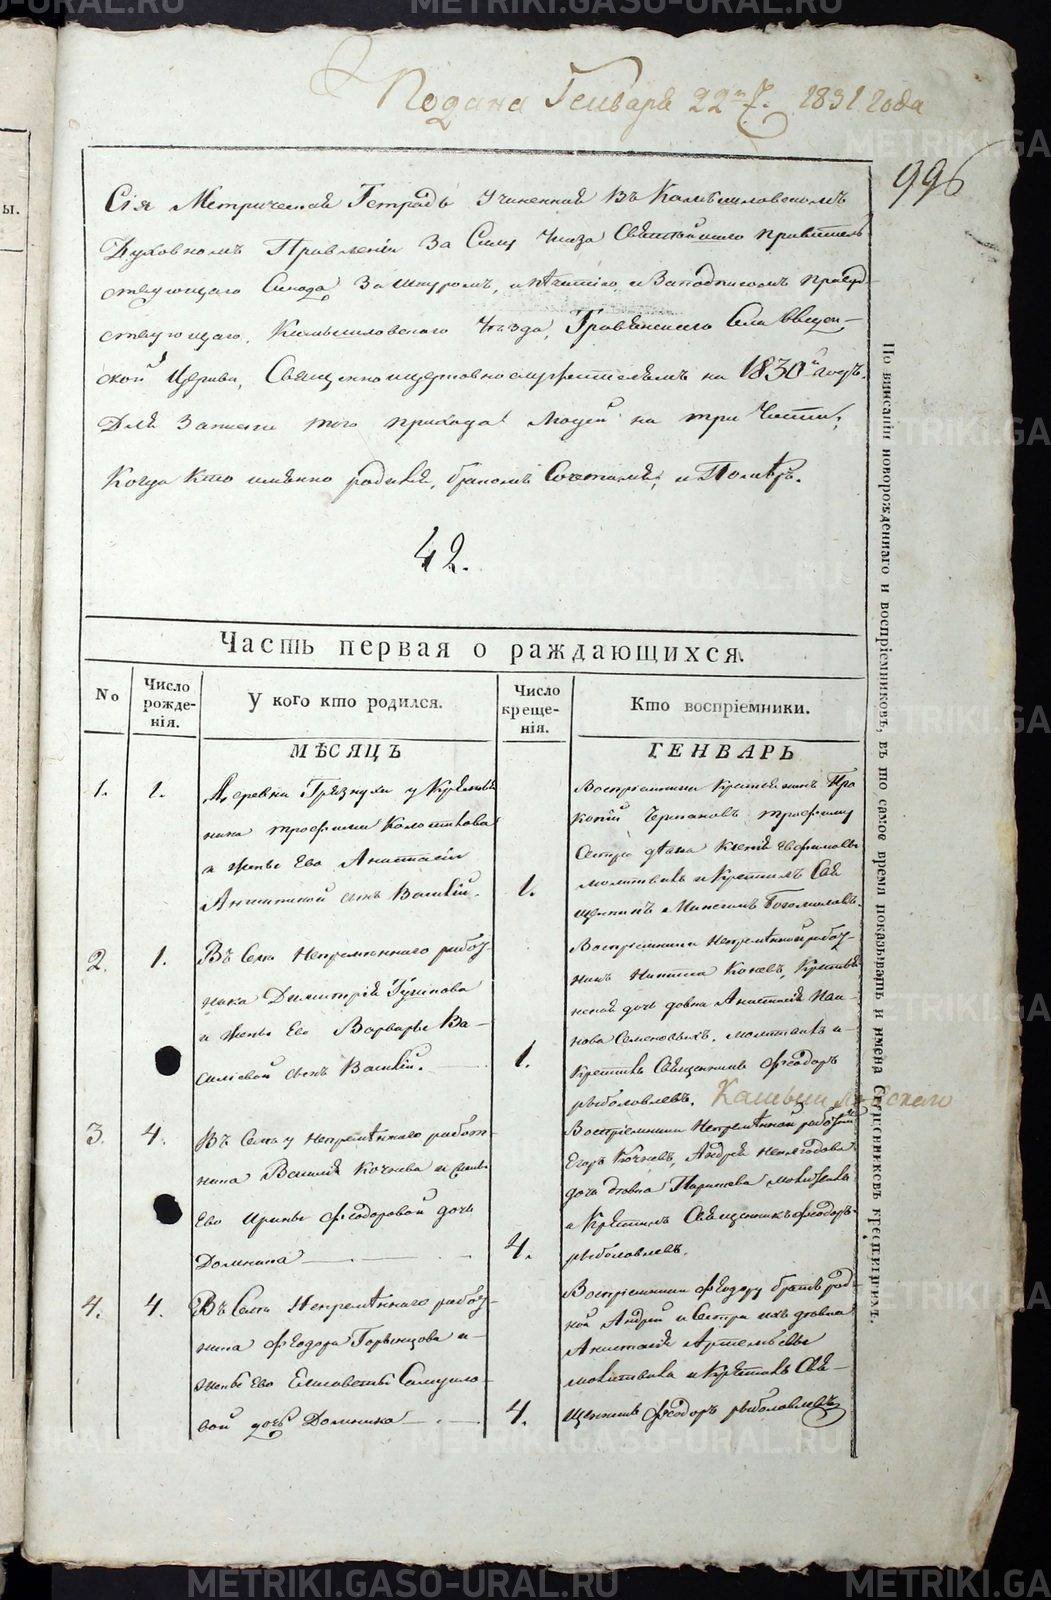 Подана Генваря 22 1831 года
996
Сія Метрическая Тетрадь Учиненная въ Камышловскомъ
Духовномъ Правленіи За Силу Указа Святейшаго Правитель
ствующаго Синода, За шнуромъ, и За подписомъ присуд
ствующаго, Камышловскаго Уѣзда, Грязновскаго Села Введен
ской Церкви, Священноцерковнослужителямъ на 1830й годъ
Для Записки того прихода людей на три Части,
Когда Кто имянно родился, бракомъ Сочетался, и Померъ.
42.
Часть первая о раждающихся.
No
Число рожде-нія.
У кого кто родился.
Число креще-нія.
Кто воспріемники.
МѢСЯЦЪ
ГЕНВАРЬ
1. 1. Деревни Грязнухи у Крестья
нина Трофима Колоткова
и жены Ево Анастасіи
сынъ Василій.
1.
Воспріемники Крестьянинъ Про
копій Черпановъ, Трофиму
Сестра дѣвка Ксенія Ефимовы
молитвилъ и Крестилъ Свя
щенникъ Максимъ Богомоловъ.
2. 1. Въ Селѣ Непремѣннаго работ
ника Димитрія
и жены Ево Варвары Ва
силіевой сынъ Василій.
1.
Воспріемники Непремѣнной работ
никъ Никита Коневъ, Крестьян
ской дочь девка Анастасія
Семеновыхъ, молитвилъ и
Крестилъ Священникъ Феодоръ
рыболовлевъ. Камышловскаго
3. 4. Въ Селѣ у непремѣннаго работ
ника Василія Кочнева и жены
Ево Ирины Феодоровой дочь
Домника
4.
Воспріемники Непремѣнной работникъ
Егоръ Кочневъ, Андрея
дочь девка молитвилъ
и Крестилъ Священникъ Феодоръ
рыболовлевъ.
4. 4. Въ Селѣ Непремѣннаго работ
ника Феодора Горбунцова и
жены Ево Елисаветы Самуило
вой дочь Домника
4.
Воспріемники Феодору братъ род
ной Андрей и Сестра ихъ девка
Анастасія Артемьевы
молитвилъ и Крестилъ Свя
щенникъ Феодоръ рыболовлевъ
По вписаніи новорожденнаго и воспріемниковъ, въ то самое время показывать и имена Священниковъ крестившихъ.
METRIKI.GASO-URAL.RU